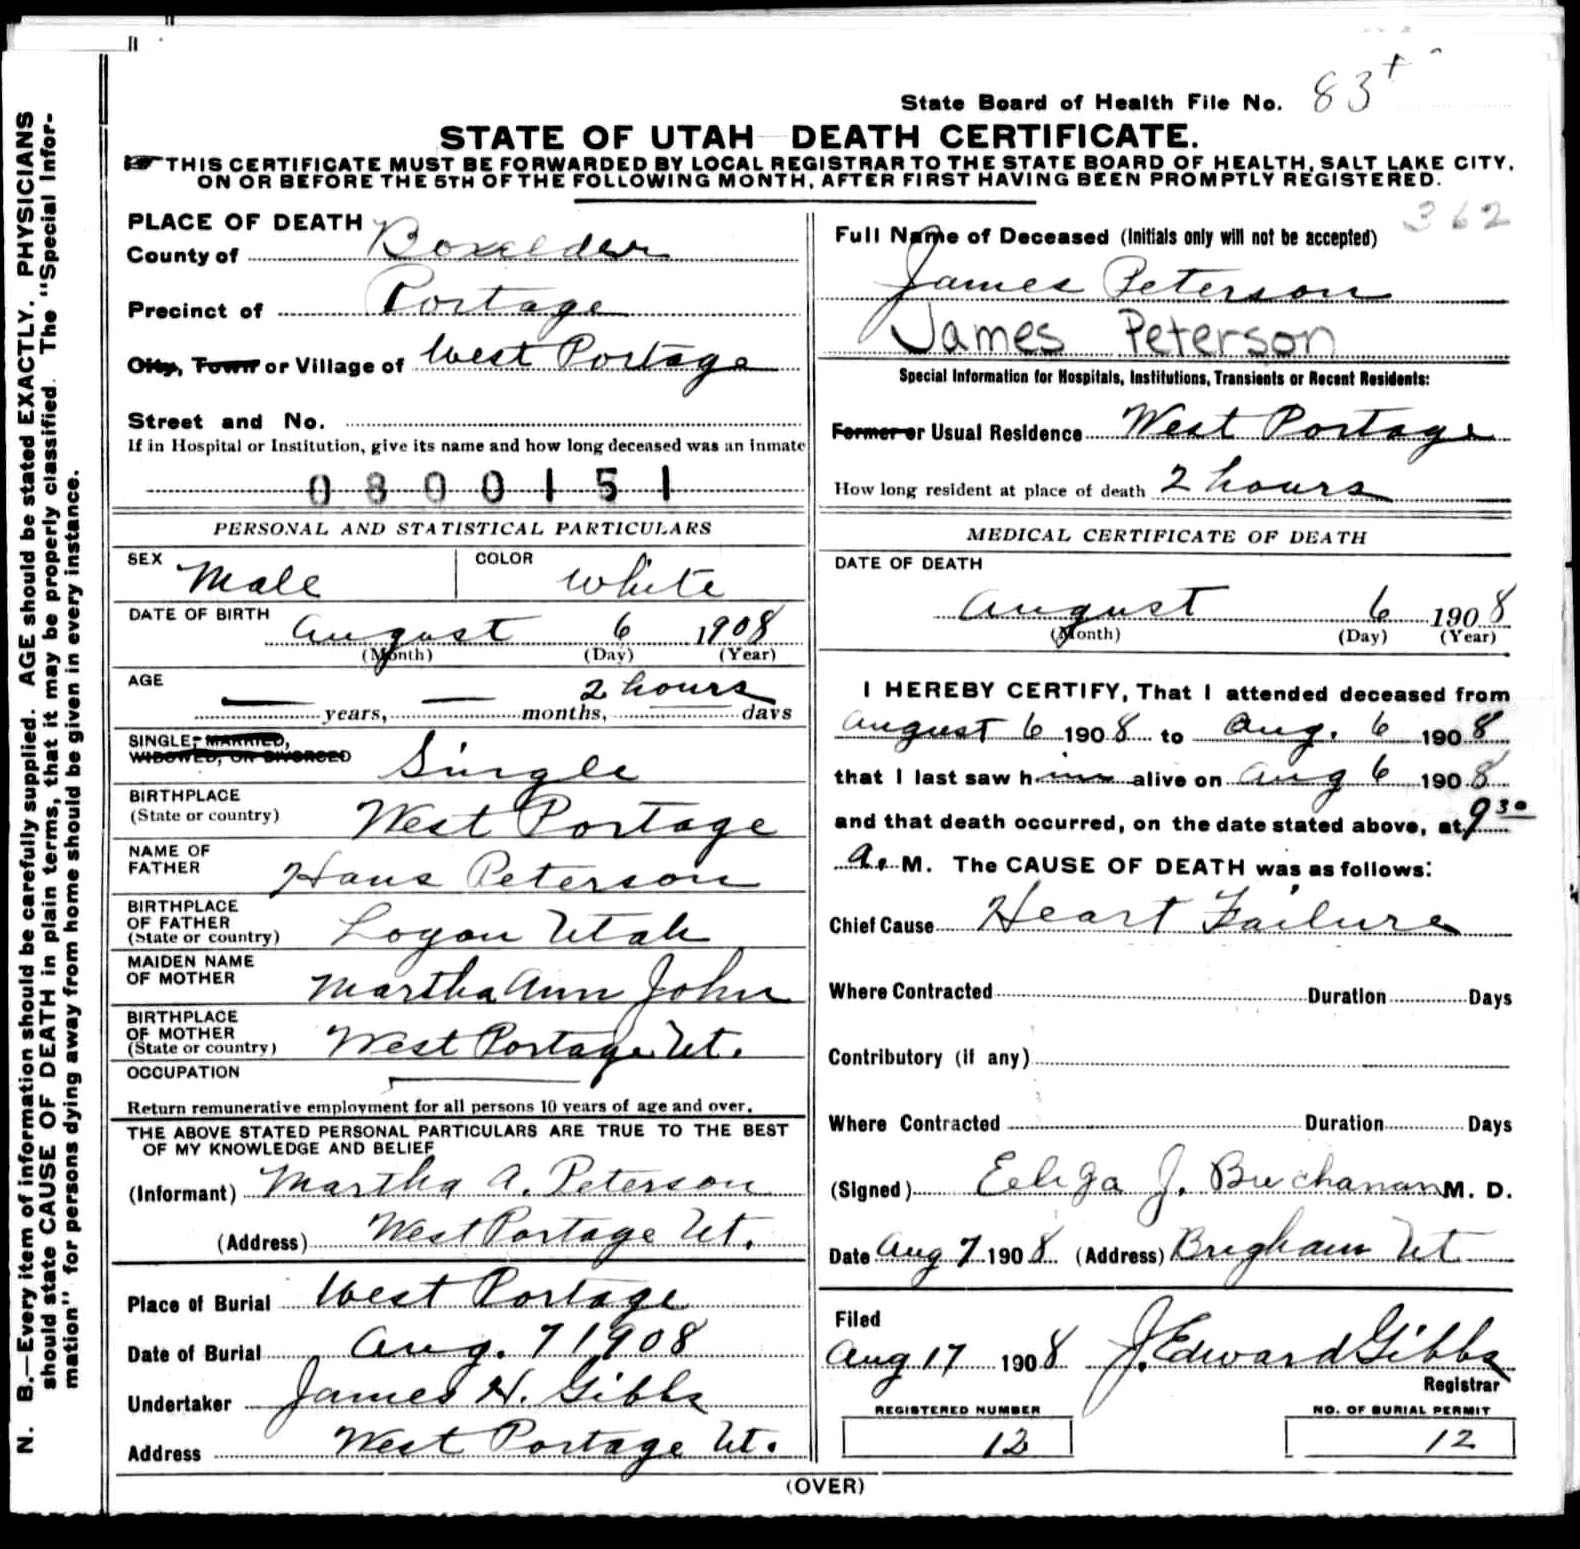 State Board of Health File No. 83
STATE OF UTAH DEATH CERTIFICATE.
THIS CERTIFICATE MUST BE FORWARDED BY LOCAL REGISTRAR TO THE STATE BOARD OF HEALTH, SALT LAKE CITY,
ON OR BEFORE THE 5TH OF THE FOLLOWING MONTH, AFTER FIRST HAVING BEEN PROMPTLY REGISTERED.
N. B.—Every item of information should be carefully supplied. AGE should be stated EXACTLY. PHYSICIANS
should state CAUSE OF DEATH in plain terms, that it may be properly classified. The "Special Infor-
mation" for persons dying away from home should be given in every instance.
PLACE OF DEATH
County of Boxelder
Precinct of Portage
City, Town or Village of West Portage
Street and No.
If in Hospital or Institution, give its name and how long deceased was an inmate
0800151
PERSONAL AND STATISTICAL PARTICULARS
SEX Male COLOR White
DATE OF BIRTH
August 6 1908
(Month) (Day) (Year)
AGE 2 hours
years, months, days
SINGLE, MARRIED,
WIDOWED, OR DIVORCED Single
BIRTHPLACE
(State or country) West Portage
NAME OF
FATHER Hans Peterson
BIRTHPLACE
OF FATHER
(State or country) Logan Utah
MAIDEN NAME
OF MOTHER Martha Ann John
BIRTHPLACE
OF MOTHER
(State or country) West Portage Ut.
OCCUPATION
Return remunerative employment for all persons 10 years of age and over.
THE ABOVE STATED PERSONAL PARTICULARS ARE TRUE TO THE BEST
OF MY KNOWLEDGE AND BELIEF
(Informant) Martha A. Peterson
(Address) West Portage Ut.
Place of Burial West Portage
Date of Burial Aug. 7 1908
Undertaker James H. Gibbs
Address West Portage Ut.
362
Full Name of Deceased (Initials only will not be accepted)
James Peterson
James Peterson
Special Information for Hospitals, Institutions, Transients or Recent Residents:
Former or Usual Residence West Portage
How long resident at place of death 2 hours
MEDICAL CERTIFICATE OF DEATH
DATE OF DEATH
August 6 1908
(Month) (Day) (Year)
I HEREBY CERTIFY, That I attended deceased from
August 6 1908 to Aug. 6 1908
that I last saw him alive on Aug 6 1908
and that death occurred, on the date stated above, at 9 30
a. M. The CAUSE OF DEATH was as follows:
Chief Cause Heart Failure
Where Contracted Duration Days
Contributory (if any)
Where Contracted Duration Days
(Signed) J. Buchanan M. D.
Date Aug 7 1908 (Address) Brigham Ut
Filed
Aug 17 1908 J. Edward Gibbs
Registrar
REGISTERED NUMBER NO. OF BURIAL PERMIT
12 12
(OVER)